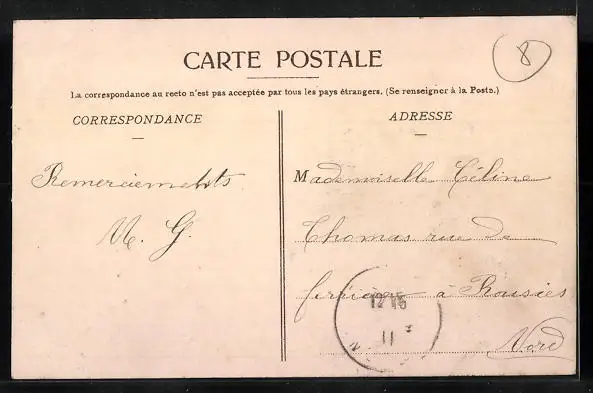 8
CARTE POSTALE
La correspondance au recto n'est pas acceptée par tous les pays étrangers. (Se renseigner à la Poste.)
CORRESPONDANCE
ADRESSE
Remerciements
Mademoiselle Céline
Thomas rue de
à
12 15
11
Nord